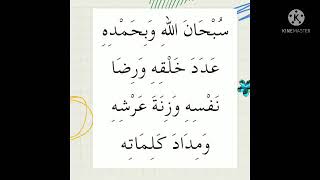 سُبْحَانَ اللهِ وَبِحَمْدِهِ
عَدَدَ خَلْقِهِ وَرِضَا
نَفْسِهِ وَزِنَةَ عَرْشِهِ
وَمِدَادَ كَلِمَاتِه
KINEMASTER